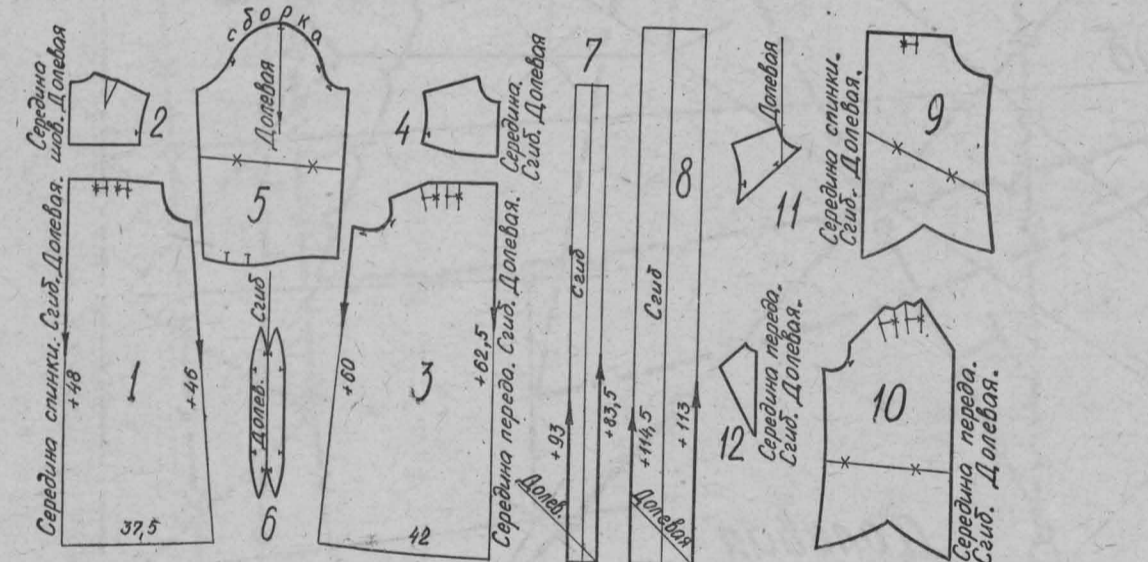 Середина
шов. Долевая
2
сборка
Долевая
5
4
Середина.
Сгиб. Долевая
Середина спинки. Сгиб. Долевая.
+48
1
+46
37,5
Сгиб
Долев.
6
+60
3
+62,5
42
Середина переда. Сгиб. Долевая.
7
Сгиб
+93
+83,5
Долев
8
Сгиб
+114,5
+113
Долевая
Долевая
11
12
Середина переда.
Сгиб. Долевая.
Середина спинки.
Сгиб. Долевая.
9
10
Середина переда.
Сгиб. Долевая.